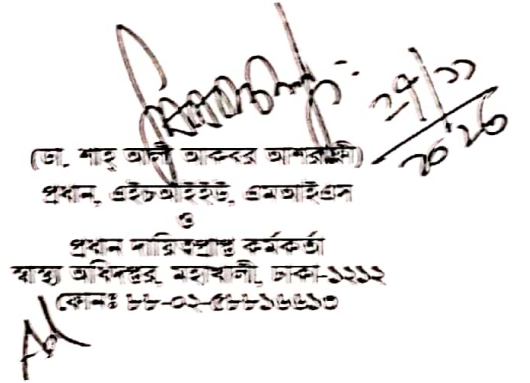 ২৭/১১
(ডা. শাহ আলী আকবর আশরাফী)
প্রধান, এইচআইইউ, এমআইএস
ও
প্রধান দায়িত্বপ্রাপ্ত কর্মকর্তা
স্বাস্থ্য অধিদপ্তর, মহাখালী, ঢাকা-১২১২
ফোনঃ ৮৮-০২-৫৮৮১৬৬১৩